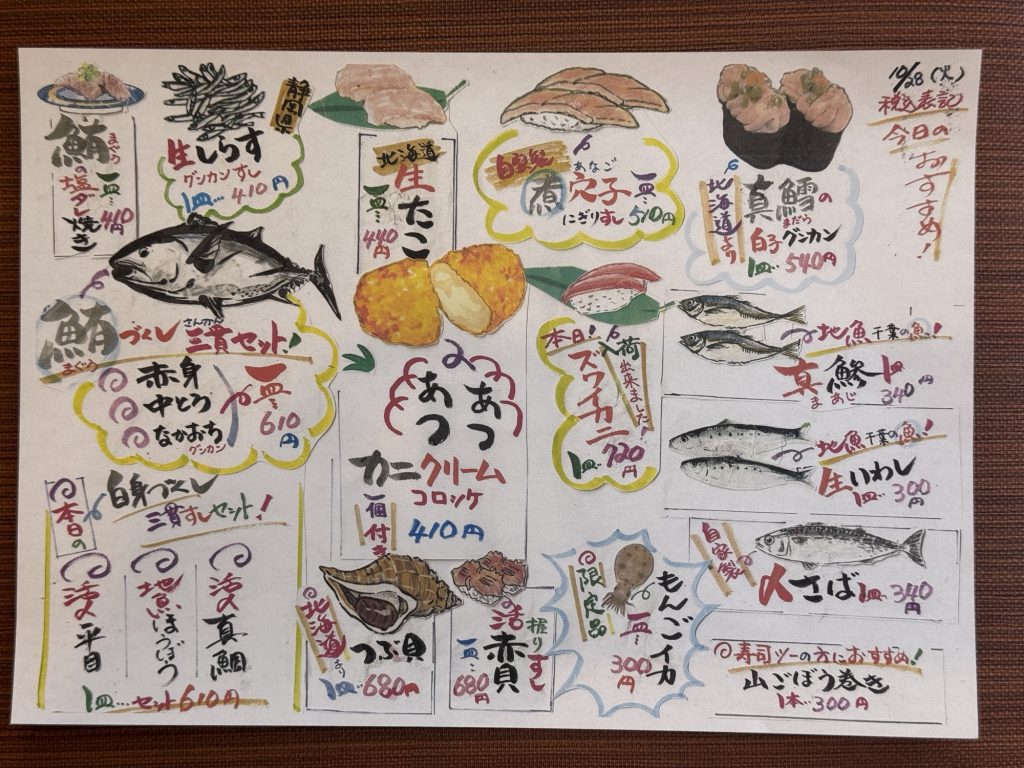 10/28(火)
税込表記
今日のおすすめ!
北海道より
真鱈の
まだら
白子グンカン
1皿…540円
自家製
煮穴子
あなご
にぎりすし
一皿…510円
北海道
生たこ
一皿…440円
静岡県
生しらす
グンカンすし
1皿…410円
鮪の塩ダレ焼き
まぐろ
一皿…410円
鮪づくし三貫セット!
まぐろ
さんかん
赤身
中とろ
なかおち
グンカン
一皿…610円
あつあつ
カニクリーム
コロッケ
一個付き
410円
本日!入荷出来ました!
ズワイガニ
1皿…720円
地魚 千葉の魚!
真鯵
まあじ
1皿340円
地魚 千葉の魚!
生いわし
1皿…300円
自家製
〆さば 1皿…340円
◎寿司ツーの方におすすめ!
山ごぼう巻き
1本…300円
限定品
もんごイカ
一皿…300円
活赤貝
握りすし
一皿…680円
北海道より
つぶ貝
1皿…680円
本日の
白身づくし
三貫すしセット!
活〆真鯛
地魚ほうぼう
活〆平目
1皿…セット610円